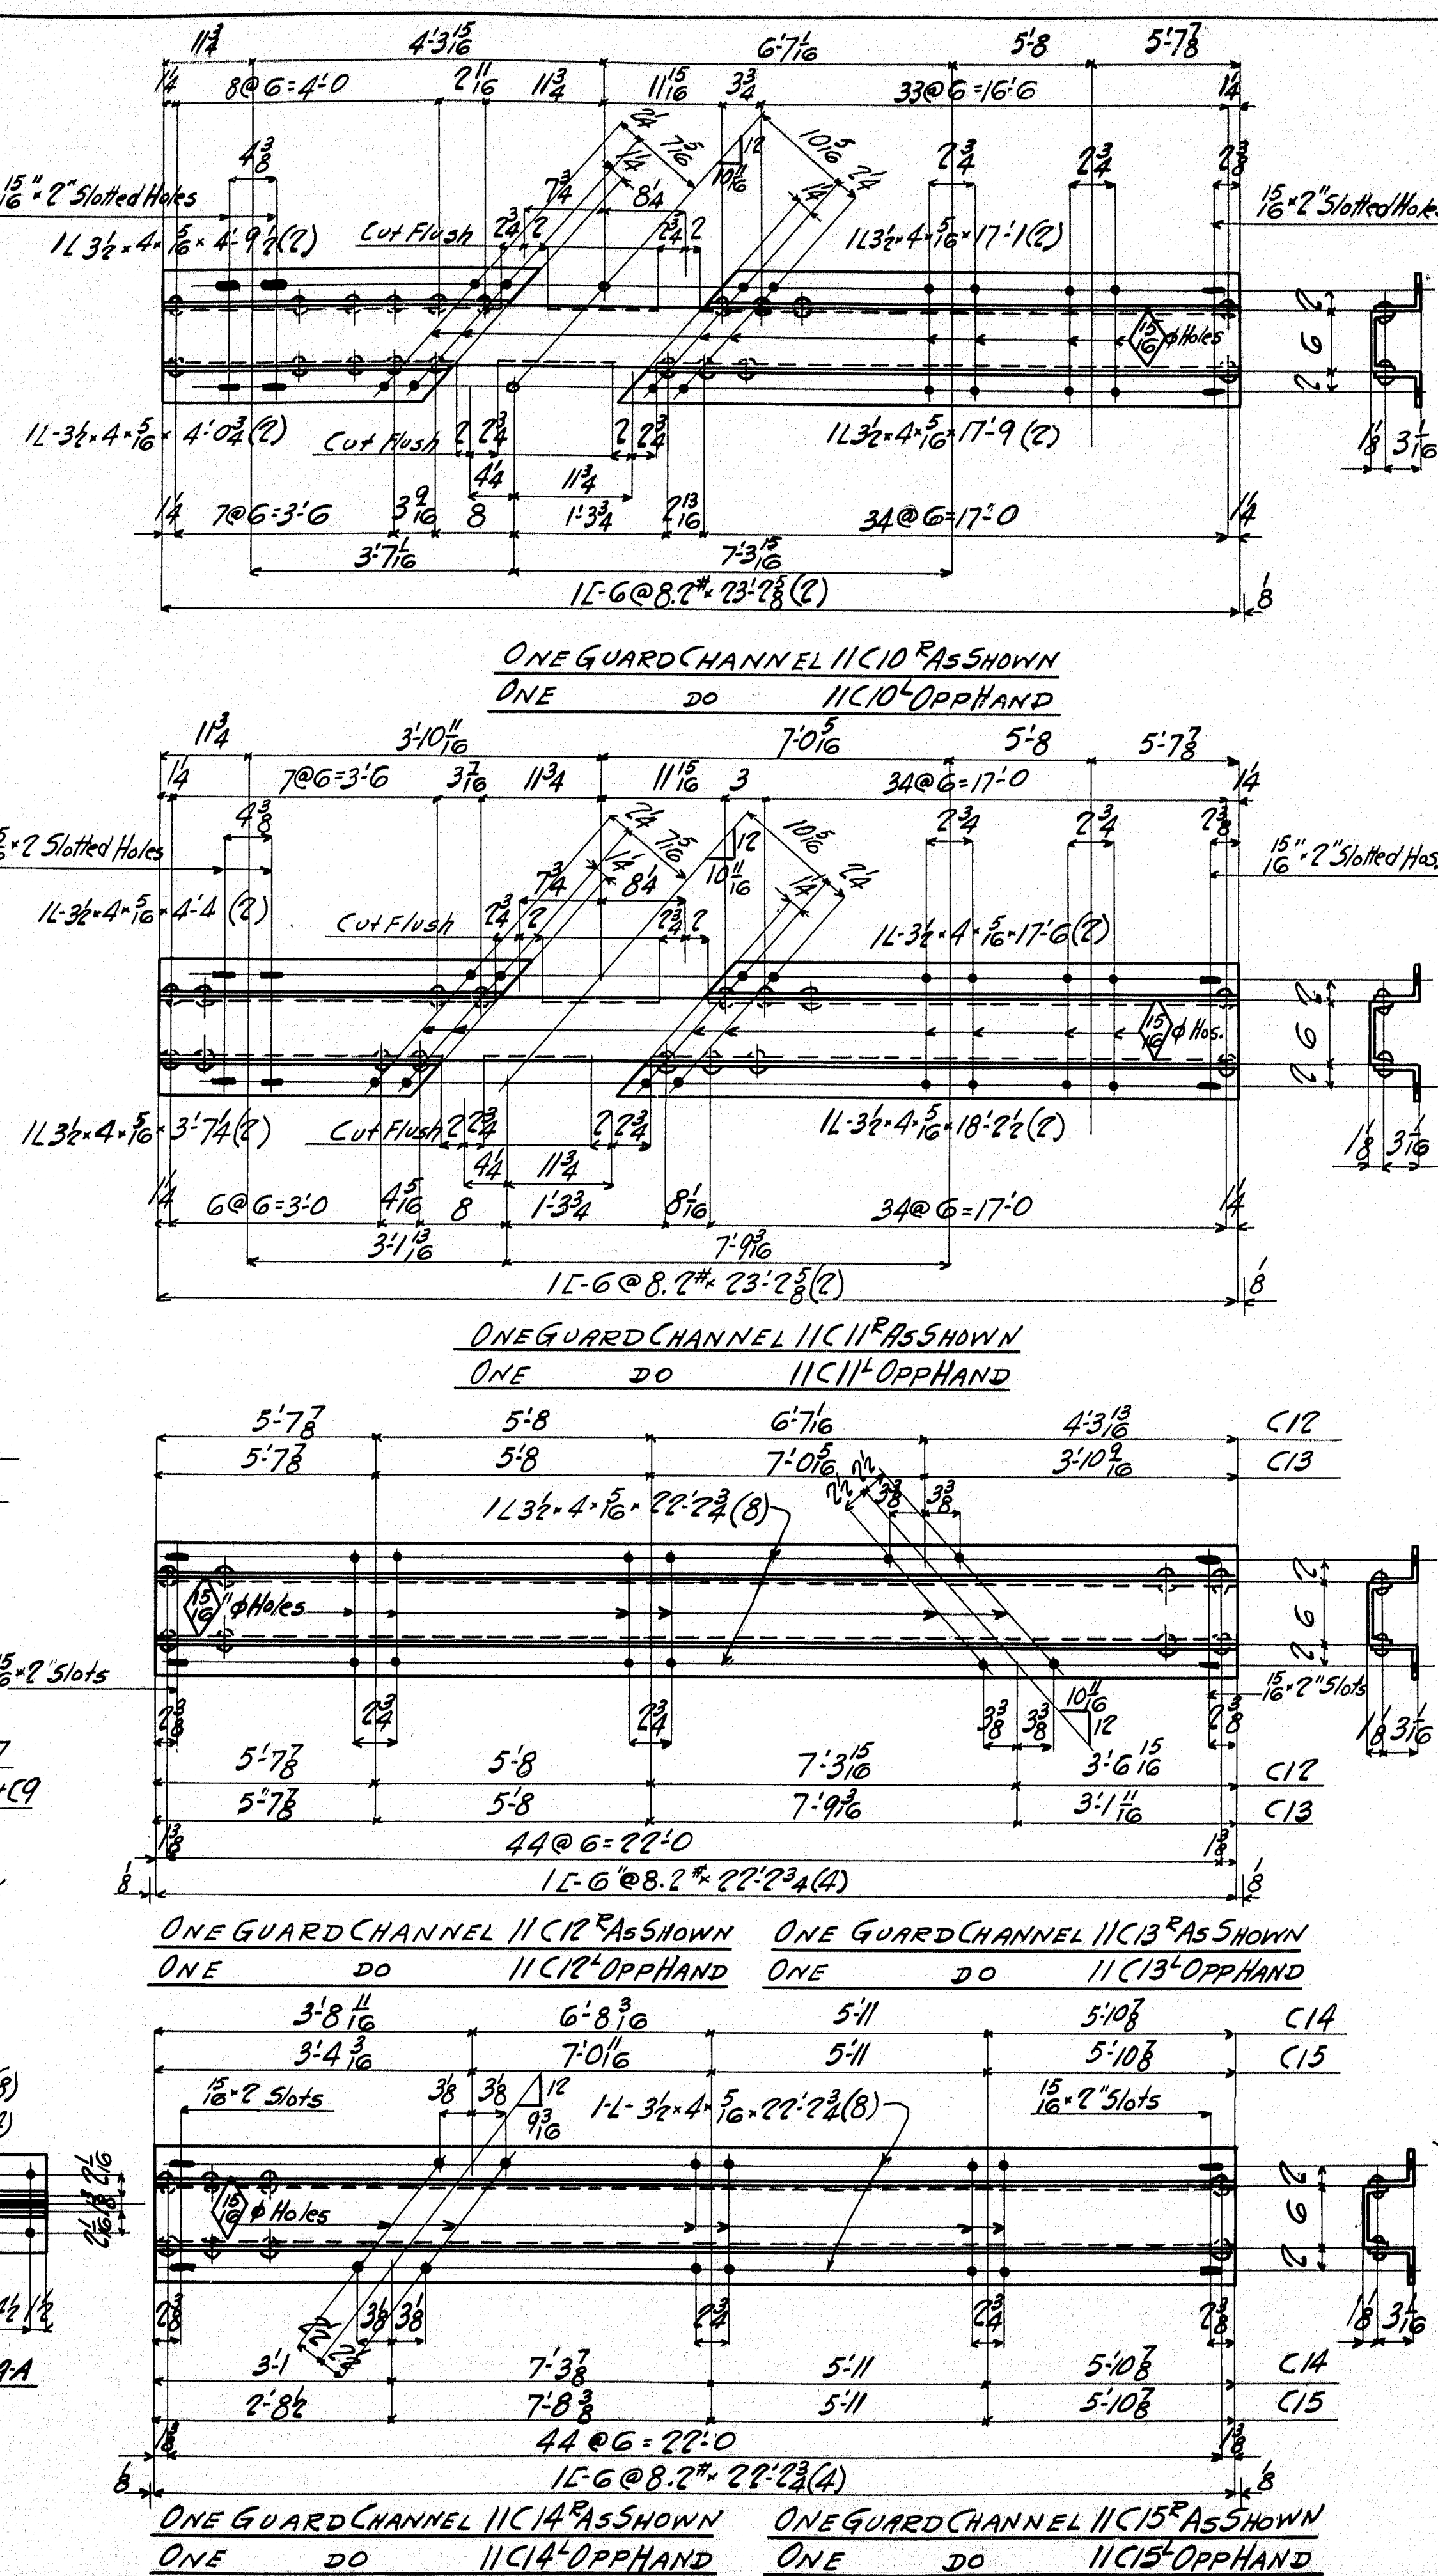 11 3/4 4'-3 15/16 6'-7 1/16 5'-8 5'-7 7/8
1 1/4 8@6=4'-0 2 11/16 11 3/4 11 15/16 3 3/4 33@6=16'-6 1 1/4
2 1/4 7 5/16 12 10 5/16
4 3/8 1 1/4 10 11/16 2 3/4 2 3/4 2 3/8
7 3/4 8 1/4 1 1/4 2 1/4
15/16" × 2" Slotted Holes 15/16 × 2" Slotted Holes
1L 3 1/2 × 4 × 5/16 × 4'-9 1/2 (2) Cut Flush 2 3/4 2 2 3/4 2 1L 3 1/2 × 4 × 5/16 × 17'-1 (2)
15/16 φ Holes 2 6 2
1L-3 1/2 × 4 × 5/16 × 4'-0 3/4 (2) Cut Flush 2 2 3/4 2 2 3/4 1L 3 1/2 × 4 × 5/16 × 17'-9 (2) 1 1/8 3 1/16
4 1/4 11 3/4
1 1/4 7@6=3'-6 3 9/16 8 1'-3 3/4 2 13/16 34@6=17'-0 1 1/4
3'-7 1/16 7'-3 15/16
1[-6@8.2# × 23'-2 5/8 (2) 1/8
ONE GUARD CHANNEL 11C10R AS SHOWN
ONE DO 11C10L OPP HAND
11 3/4 3'-10 11/16 7'-0 5/16 5'-8 5'-7 7/8
1 1/4 7@6=3'-6 3 7/16 11 3/4 11 15/16 3 34@6=17'-0 1 1/4
4 3/8 2 1/4 7 5/16 12 10 5/16 2 3/4 2 3/4 2 3/8
× 2 Slotted Holes 7 3/4 1 1/4 8 1/4 10 11/16 1 1/4 2 1/4 15/16" × 2" Slotted Hos.
1L-3 1/2 × 4 × 5/16 × 4'-4 (2) Cut Flush 2 3/4 2 2 3/4 2 1L-3 1/2 × 4 × 5/16 × 17'-6 (2)
15/16 φ Hos. 2 6 2
1L 3 1/2 × 4 × 5/16 × 3'-7 1/4 (2) Cut Flush 2 2 3/4 2 2 3/4 1L-3 1/2 × 4 × 5/16 × 18'-2 1/2 (2) 1 1/8 3 1/16
4 1/4 11 3/4
1 1/4 6@6=3'-0 4 5/16 8 1'-3 3/4 8 1/16 34@6=17'-0 1 1/4
3'-1 13/16 7'-9 3/16
1[-6@8.2# × 23'-2 5/8 (2) 1/8
ONE GUARD CHANNEL 11C11R AS SHOWN
ONE DO 11C11L OPP HAND
5'-7 7/8 5'-8 6'-7 1/16 4'-3 13/16 C12
5'-7 7/8 5'-8 7'-0 5/16 3'-10 9/16 C13
1L 3 1/2 × 4 × 5/16 × 22'-2 3/4 (8) 2 1/2 2 1/2 3 3/8 3 3/8
15/16" φ Holes 2 6 2
× 2" Slots 15/16 × 2" Slots
2 3/8 2 3/4 2 3/4 3 3/8 3 3/8 10 11/16 12 2 3/8 1 1/8 3 1/16
5'-7 7/8 5'-8 7'-3 15/16 3'-6 15/16 C12
5'-7 7/8 5'-8 7'-9 3/16 3'-1 11/16 C13
C9
1 3/8 44@6=22'-0 1 3/8
1/8 1[-6"@8.2# × 22'-2 3/4 (4) 1/8
ONE GUARD CHANNEL 11C12R AS SHOWN ONE GUARD CHANNEL 11C13R AS SHOWN
ONE DO 11C12L OPP HAND ONE DO 11C13L OPP HAND
3'-8 11/16 6'-8 3/16 5'-11 5'-10 7/8 C14
3'-4 3/16 7'-0 11/16 5'-11 5'-10 7/8 C15
15/16 × 2 Slots 3 1/8 3 1/8 12 9 3/16 1-L-3 1/2 × 4 × 5/16 × 22'-2 3/4 (8) 15/16 × 2" Slots
15/16 φ Holes 2 6 2
2 3/8 3 1/8 3 1/8 2 3/4 2 3/4 2 3/8 1 1/8 3 1/16
9-A
3'-1 7'-3 7/8 5'-11 5'-10 7/8 C14
2'-8 1/2 7'-8 3/8 5'-11 5'-10 7/8 C15
1 3/8 44@6=22'-0 1 3/8
1/8 1[-6@8.2# × 22'-2 3/4 (4) 1/8
ONE GUARD CHANNEL 11C14R AS SHOWN ONE GUARD CHANNEL 11C15R AS SHOWN
ONE DO 11C14L OPP HAND ONE DO 11C15L OPP HAND